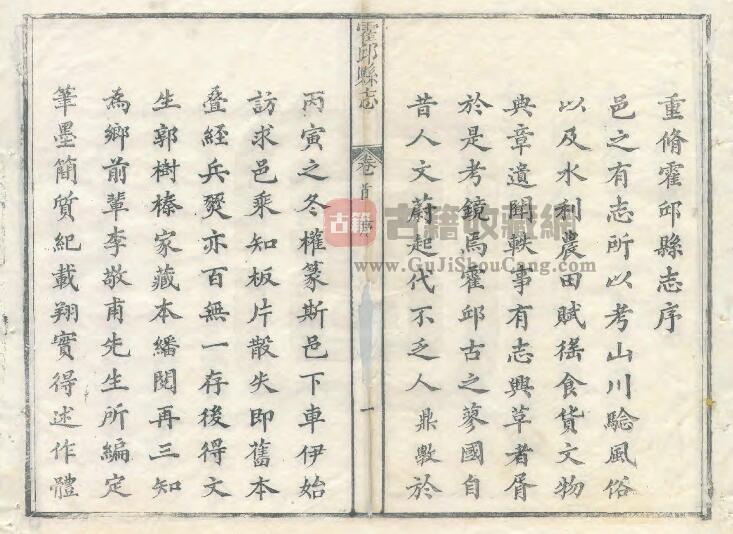 重脩霍邱縣志序
邑之有志所以考山川騐風俗
以及水利農田賦徭食貨文物
典章遺聞軼事有志興革者胥
於是考鏡焉霍邱古之蓼國自
昔人文蔚起代不乏人鼎數於
霍邱縣志
卷首
序
一
丙寅之冬權篆斯邑下車伊始
訪求邑乘知板片散失即舊本
疊經兵燹亦百無一存後得文
生郭樹榛家藏本繙閱再三知
為鄉前輩李敬甫先生所編定
筆墨簡質紀載翔實得述作體
古籍
古籍收藏網
www.GuJiShouCang.com